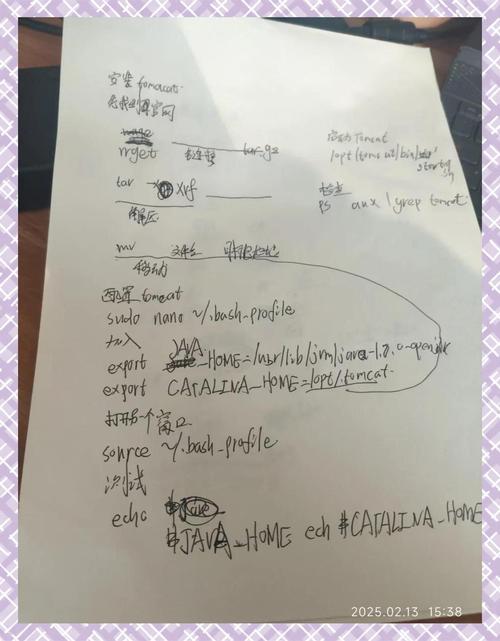 安装 tomacat.
先找到官网
wget ______ tar.gz
tar xvf ______
解压
mv 文件名
移动
配置 tomcat
sudo nano ~/.bash_profile
加入
export JAVA_HOME=/usr/lib/jvm/java-1.8.0-openjdk
export CATALINA_HOME=/opt/tomcat
打开另一个窗口
source ~/.bash_profile
测试
echo
#JAVA_HOME ech #CATALINA_HOME
启动 Tomcat
/opt/tomcat/bin/
startup
sh
检查
ps aux | grep tomcat
2025.02.13 15:38